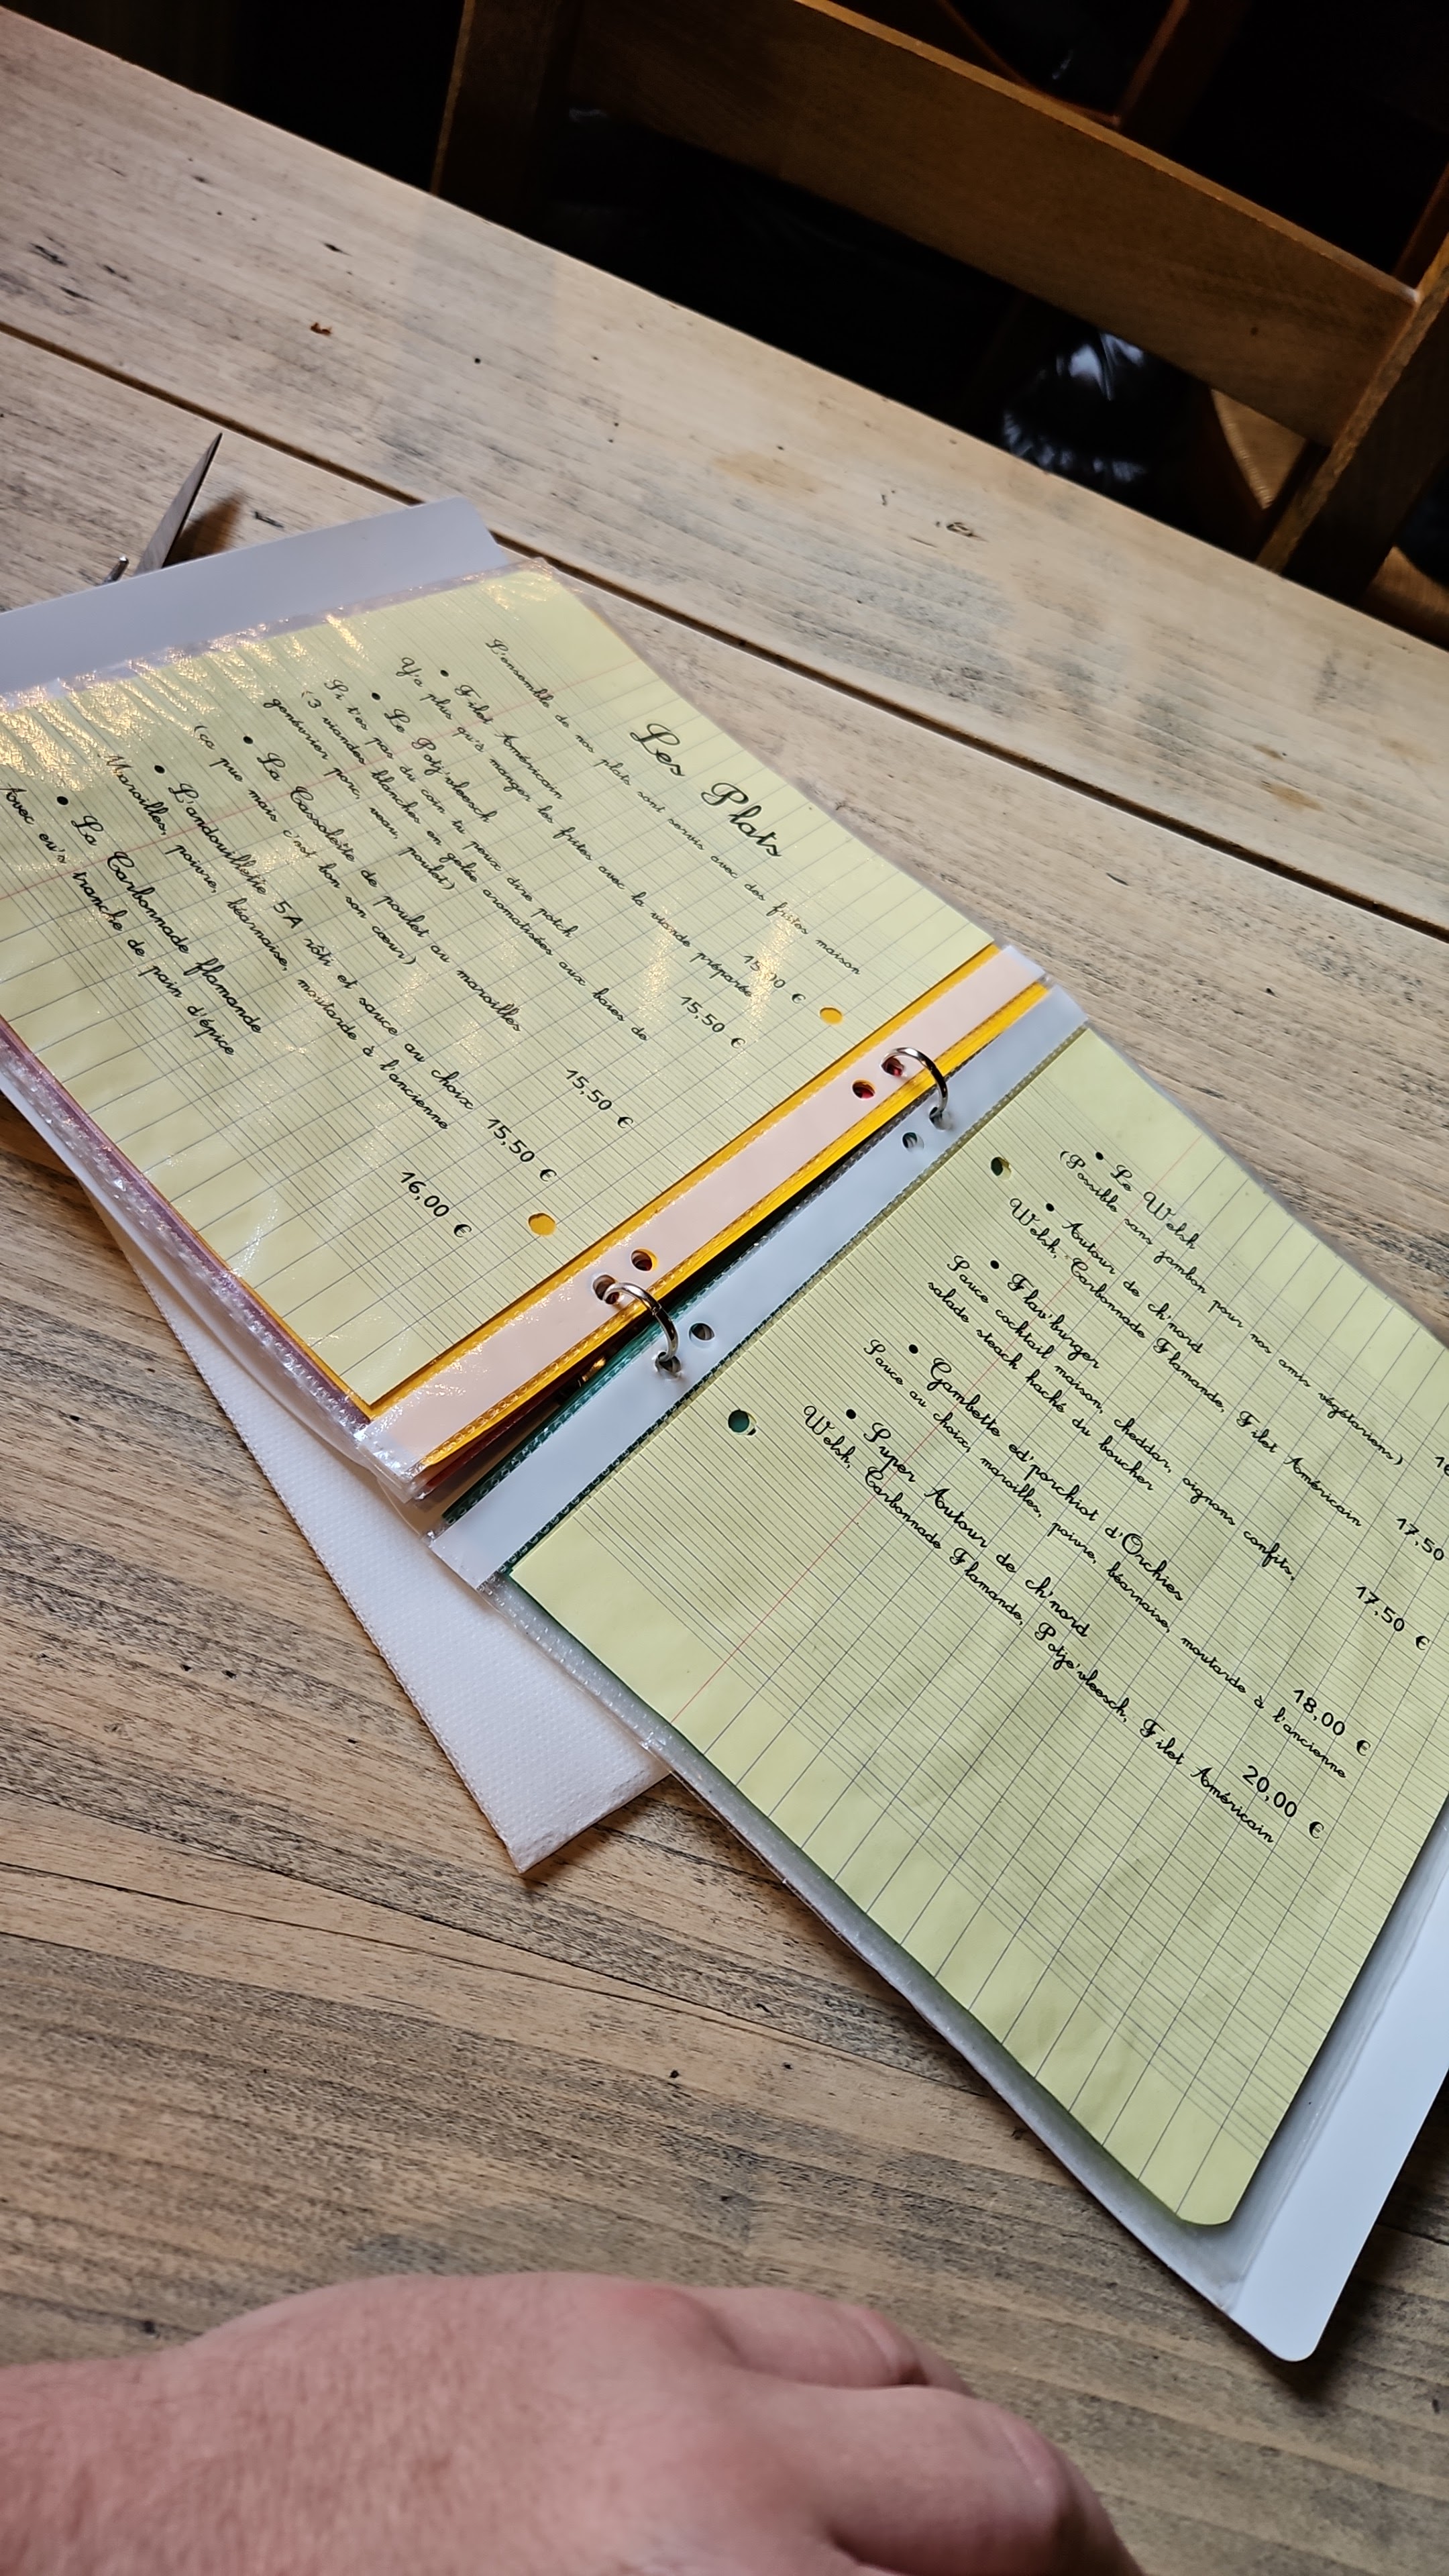 Les Plats
L'ensemble de nos plats sont servis avec des frites maison
• Filet Américain 15,00 €
Y'a plus qu'à manger les frites avec la viande préparée
• Le Potj'vleesch 15,50 €
Si t'es pas du coin tu peux dire potch
(3 viandes blanches en gelée aromatisées aux baies de
genévrier porc, veau, poulet)
• La Cassolette de poulet au maroilles 15,50 €
(ça pue mais c'est bon son cœur)
• L'andouillette 5A rôti et sauce au choix 15,50 €
Maroilles, poivre, béarnaise, moutarde à l'ancienne
• La Carbonnade flamande 16,00 €
Avec eu's tranche de pain d'épice
• Le Welsh
(Possible sans jambon pour nos amis végétariens)
• Autour de ch'nord 17,50
Welsh, Carbonnade Flamande, Filet Américain
• Flav'burger 17,50 €
Sauce cocktail maison, cheddar, oignons confits,
salade steack haché du boucher
• Gambette ed'porchiot d'Orchies 18,00 €
Sauce au choix, maroilles, poivre, béarnaise, moutarde à l'ancienne
• Super Autour de ch'nord 20,00 €
Welsh, Carbonnade Flamande, Potje'vleesch, Filet Américain